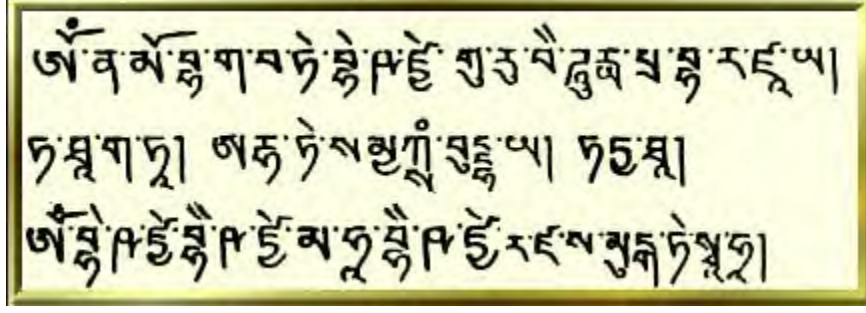 ༀ་ན་མོ་བྷ་ག་བ་ཏེ་བྷཻ་ཥ་ཛྱེ་ གུ་རུ་བཻ་ཌཱུརྱ་པྲ་བྷ་ར་ཛཱ་ཡ།
ཏ་ཐཱ་ག་ཏཱ། ཨརྷ་ཏེ་སམྱཀྶཾ་བུདྡྷ་ཡ། ཏདྱ་ཐཱ།
ༀ་བྷཻ་ཥ་ཛྱེ་བྷཻ་ཥ་ཛྱེ་མ་ཧཱ་བྷཻ་ཥ་ཛྱེ་ར་ཛ་ས་མུདྒ་ཏེ་སྭཱ་ཧཱ།